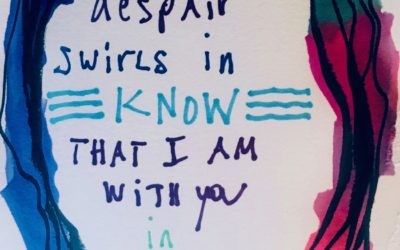 despair
swirls in
KNOW
THAT I AM
with you
in